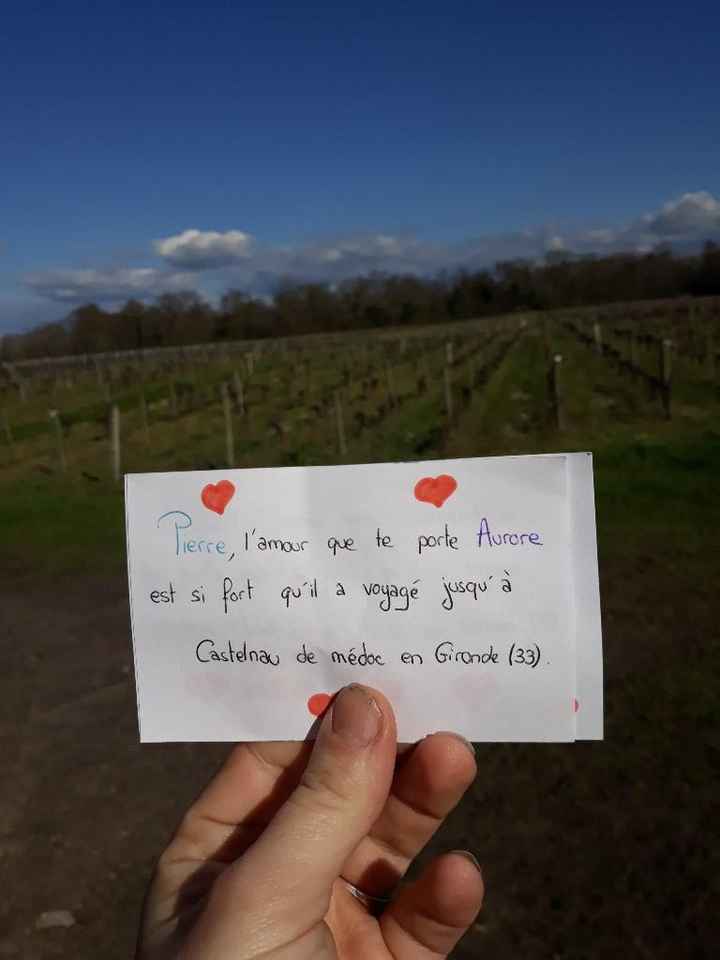 Pierre, l'amour que te porte Aurore
est si fort qu'il a voyagé jusqu'à
Castelnau de médoc en Gironde (33).